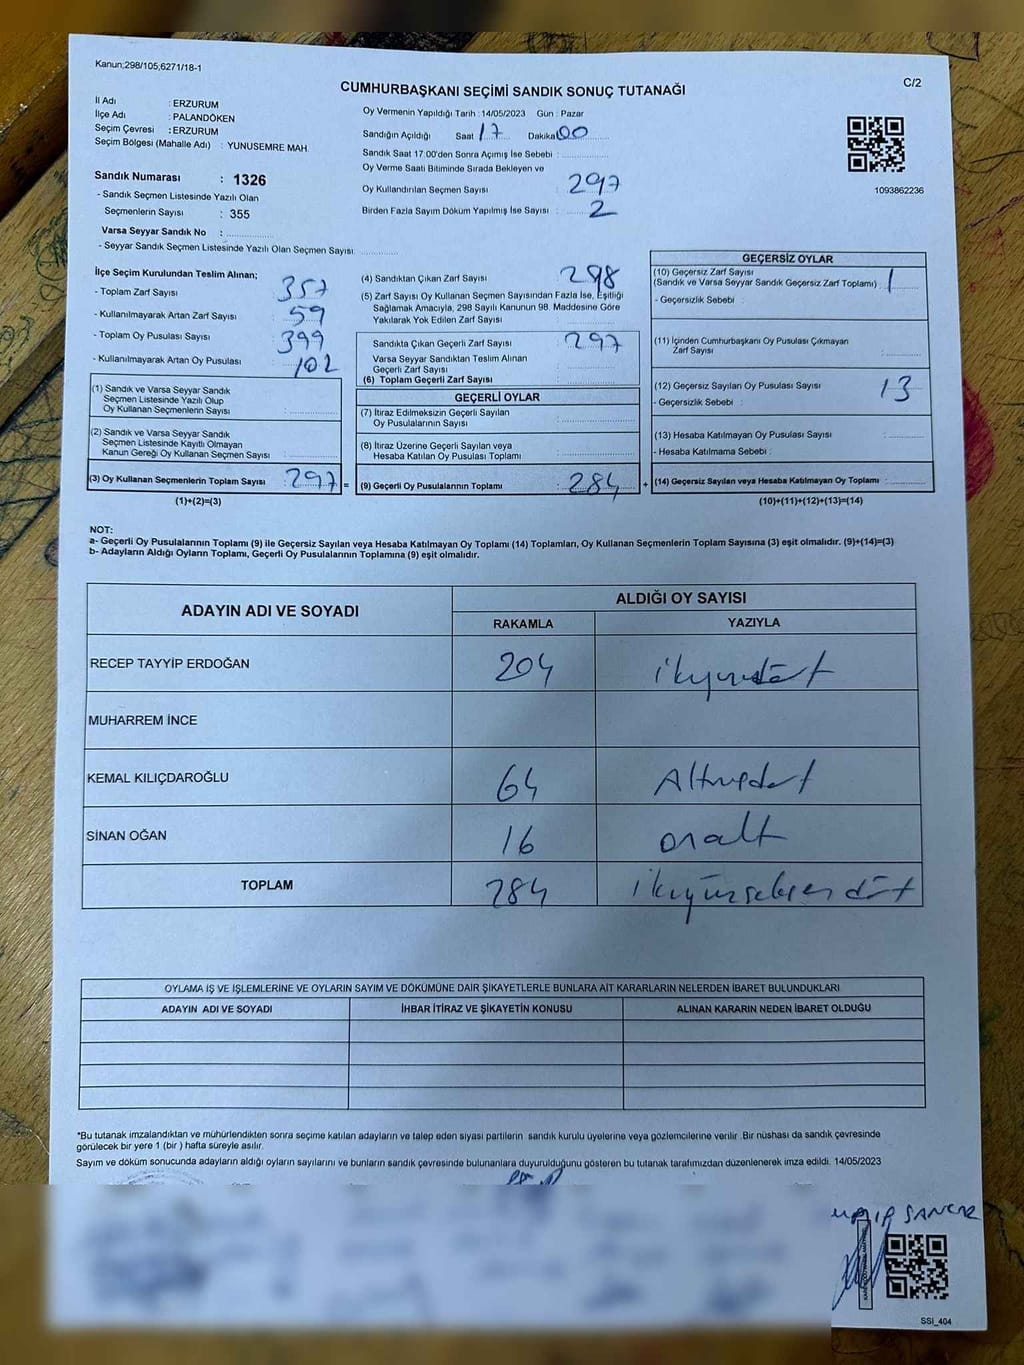 Kanun;298/105,6271/18-1
CUMHURBAŞKANI SEÇİMİ SANDIK SONUÇ TUTANAĞI
C/2
İl Adı : ERZURUM
İlçe Adı : PALANDÖKEN
Seçim Çevresi : ERZURUM
Seçim Bölgesi (Mahalle Adı) : YUNUSEMRE MAH.
Sandık Numarası : 1326
- Sandık Seçmen Listesinde Yazılı Olan
Seçmenlerin Sayısı : 355
Varsa Seyyar Sandık No :
- Seyyar Sandık Seçmen Listesinde Yazılı Olan Seçmen Sayısı:
Oy Vermenin Yapıldığı Tarih : 14/05/2023 Gün : Pazar
Sandığın Açıldığı Saat 17 Dakika 00
Sandık Saat 17:00'den Sonra Açımış İse Sebebi :
Oy Verme Saati Bitiminde Sırada Bekleyen ve
Oy Kullandırılan Seçmen Sayısı : 297
Birden Fazla Sayım Döküm Yapılmış İse Sayısı : 2
1093862236
İlçe Seçim Kurulundan Teslim Alınan;
- Toplam Zarf Sayısı : 357
- Kullanılmayarak Artan Zarf Sayısı : 59
- Toplam Oy Pusulası Sayısı : 399
- Kullanılmayarak Artan Oy Pusulası : 102
(1) Sandık ve Varsa Seyyar Sandık
Seçmen Listesinde Yazılı Olup
Oy Kullanan Seçmenlerin Sayısı :
(2) Sandık ve Varsa Seyyar Sandık
Seçmen Listesinde Kayıtlı Olmayan
Kanun Gereği Oy Kullanan Seçmen Sayısı :
(3) Oy Kullanan Seçmenlerin Toplam Sayısı : 297 =
(1)+(2)=(3)
(4) Sandıktan Çıkan Zarf Sayısı : 298
(5) Zarf Sayısı Oy Kullanan Seçmen Sayısından Fazla İse, Eşitliği
Sağlamak Amacıyla, 298 Sayılı Kanunun 98. Maddesine Göre
Yakılarak Yok Edilen Zarf Sayısı :
Sandıkta Çıkan Geçerli Zarf Sayısı : 297
Varsa Seyyar Sandıktan Teslim Alınan
Geçerli Zarf Sayısı :
(6) Toplam Geçerli Zarf Sayısı :
GEÇERLİ OYLAR
(7) İtiraz Edilmeksizin Geçerli Sayılan
Oy Pusulalarının Sayısı :
(8) İtiraz Üzerine Geçerli Sayılan veya
Hesaba Katılan Oy Pusulası Toplamı :
(9) Geçerli Oy Pusulalarının Toplamı : 284 +
GEÇERSİZ OYLAR
(10) Geçersiz Zarf Sayısı
(Sandık ve Varsa Seyyar Sandık Geçersiz Zarf Toplamı) : 1
- Geçersizlik Sebebi :
(11) İçinden Cumhurbaşkanı Oy Pusulası Çıkmayan
Zarf Sayısı :
(12) Geçersiz Sayılan Oy Pusulası Sayısı : 13
- Geçersizlik Sebebi :
(13) Hesaba Katılmayan Oy Pusulası Sayısı :
- Hesaba Katılmama Sebebi :
(14) Geçersiz Sayılan veya Hesaba Katılmayan Oy Toplamı :
(10)+(11)+(12)+(13)=(14)
NOT:
a- Geçerli Oy Pusulalarının Toplamı (9) ile Geçersiz Sayılan veya Hesaba Katılmayan Oy Toplamı (14) Toplamları, Oy Kullanan Seçmenlerin Toplam Sayısına (3) eşit olmalıdır. (9)+(14)=(3)
b- Adayların Aldığı Oyların Toplamı, Geçerli Oy Pusulalarının Toplamına (9) eşit olmalıdır.
ADAYIN ADI VE SOYADI
ALDIĞI OY SAYISI
RAKAMLA YAZIYLA
RECEP TAYYİP ERDOĞAN 204 ikiyüzdört
MUHARREM İNCE
KEMAL KILIÇDAROĞLU 64 Altmışdört
SİNAN OĞAN 16 onaltı
TOPLAM 284 ikiyüzseksendört
OYLAMA İŞ VE İŞLEMLERİNE VE OYLARIN SAYIM VE DÖKÜMÜNE DAİR ŞİKAYETLERLE BUNLARA AİT KARARLARIN NELERDEN İBARET BULUNDUKLARI
ADAYIN ADI VE SOYADI İHBAR İTİRAZ VE ŞİKAYETİN KONUSU ALINAN KARARIN NEDEN İBARET OLDUĞU
*Bu tutanak imzalandıktan ve mühürlendikten sonra seçime katılan adayların ve talep eden siyasi partilerin sandık kurulu üyelerine veya gözlemcilerine verilir .Bir nüshası da sandık çevresinde
görülecek bir yere 1 (bir ) hafta süreyle asılır.
Sayım ve döküm sonucunda adayların aldığı oyların sayılarını ve bunların sandık çevresinde bulunanlara duyurulduğunu gösteren bu tutanak tarafımızdan düzenlenerek imza edildi. 14/05/2023
SANCAR
SSİ_404